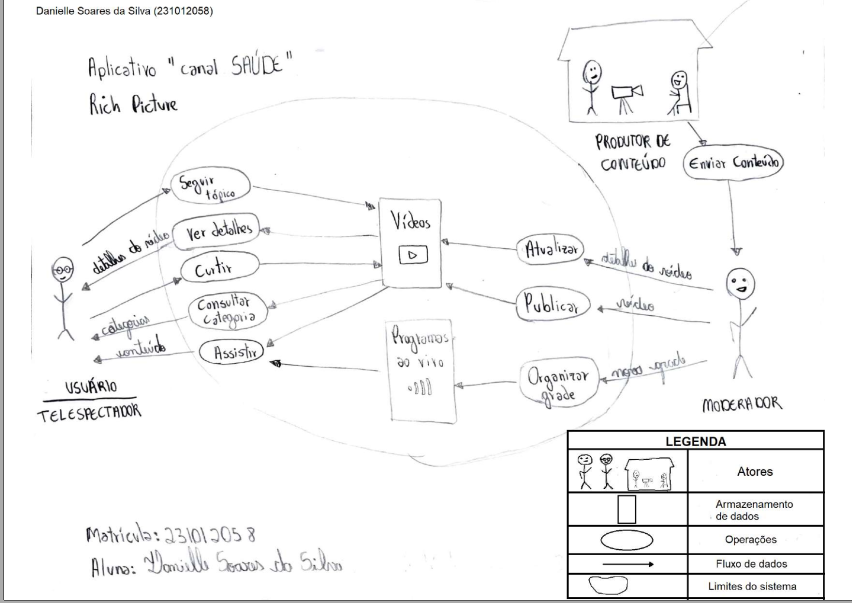 Danielle Soares da Silva (231012058)
Aplicativo "canal SAÚDE"
Rich Picture
PRODUTOR DE
CONTEÚDO
Enviar Conteúdo
Seguir
tópico
Ver detalhes
detalhes do vídeo
Curtir
Consultar
Categoria
categorias
Assistir
conteúdo
USUÁRIO
TELESPECTADOR
Vídeos
Programas
ao vivo
Atualizar
detalhes do vídeo
Publicar
vídeo
Organizar
grade
nova grade
MODERADOR
LEGENDA
Atores
Armazenamento
de dados
Operações
Fluxo de dados
Limites do sistema
Matrícula: 231012058
Aluna: Danielle Soares da Silva